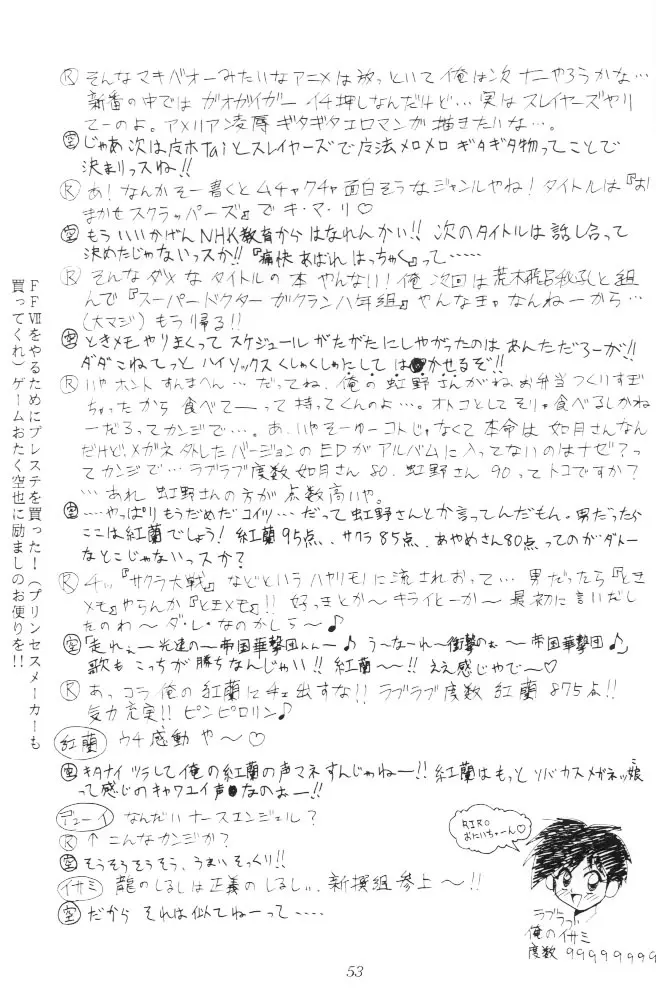 Ⓡ そんなマキバオーみたいなアニメは放っといて俺は次ナニやろうかな…
新番の中では ガオガイガー イチ押しなんだけど…実は スレイヤーズやり
てーのよ。アメリアン凌辱 ギタギタエロマンが描きたいな…。
空 じゃあ次は皮ホTaiとスレイヤーズで魔法メロメロ ギタギタ物ってことで
決まりっスね!!
Ⓡ あ!なんかそー書くとムチャクチャ面白そうなジャンルやね!タイトルは『お
まかせスクラッパーズ』で キ・マ・リ♡
空 もういいかげんNHK教育からはなれんかい!! 次のタイトルは話し合って
決めたじゃないっスか!!『痛快あばれはっちゃく』って……
Ⓡ そんなダメなタイトルの本 やんない!俺 次回は荒木飛呂秋孔と組
んで『スーパードクター ガクラン八年組』やんなきゃなんねーから…
(大マジ)もう帰る!!
空 ときメモやりまくってスケジュールがたがたにしやがったのは あんただろーが!!
ダダこねてっと ハイソックスくしゃくしゃにして はかせるぞ!!
Ⓡ いやホントすんまへん…だってね、俺の虹野さんがねお弁当つくりすぎ
ちゃったから 食べてーって持ってくんのよ…。オトコとしてそりゃ食べるしかね
ーだろってカンジで…。あ、いやそーゆーコトじゃなくて本命は如月さんなん
だけど、メガネ外したバージョンのEDがアルバムに入ってないのはナゼ?っ
てカンジで…ラブラブ度数如月さん 80、虹野さん 90ってトコですか?
…あれ 虹野さんの方が点数高いや。
空 ……やっぱりもうだめだコイツ…だって虹野さんとか言ってんだもん。男だったら
ここは紅蘭でしょう!紅蘭95点、サクラ85点、あやめさん80点ってのがダトー
なとこじゃないっスか?
Ⓡ チィ『サクラ大戦』などというハヤリモノに流されおって…男だったら『とき
メモ』やらんか『ときメモ』!! 好っきとか〜キライとーか〜最初に言いだし
たのわ〜ダ・レ・なのかしら〜♪
空 「走れぇー光速の〜帝国華撃団んんー♪ う〜なーれ〜衝撃のぉ〜帝国華撃団♪」
歌もこっちが勝ちなんじゃい!! 紅蘭〜〜!!ええ感じやで〜♡
Ⓡ あっコラ俺の紅蘭にチェ出すな!!ラブラブ度数 紅蘭 875点!!
気力充実!!ピンピロリン♪
紅蘭 ウチ感動や〜♡
空 キタナイツラして俺の紅蘭の声マネすんじゃねー!!紅蘭はもっとソバカスメガネッ娘
って感じのキャワエイ声なのぉー!!
デューイ なんだいナースエンジェル?
Ⓡ ↑こんなカンジか?
空 そうそうそうそう、うまいそっくり!!
イサミ 龍のしるしは正義のしるしぃ、新撰組参上〜!!
空 だから それは似てねーって……
FFⅦをやるためにプレステを買った!(プリンセスメーカーも
買ってくれ)ゲームおたく空也に励ましのお便りを!!
RIRO
おにいちゃーん♡
ラブラブ
俺のイサミ
度数 999999999
53